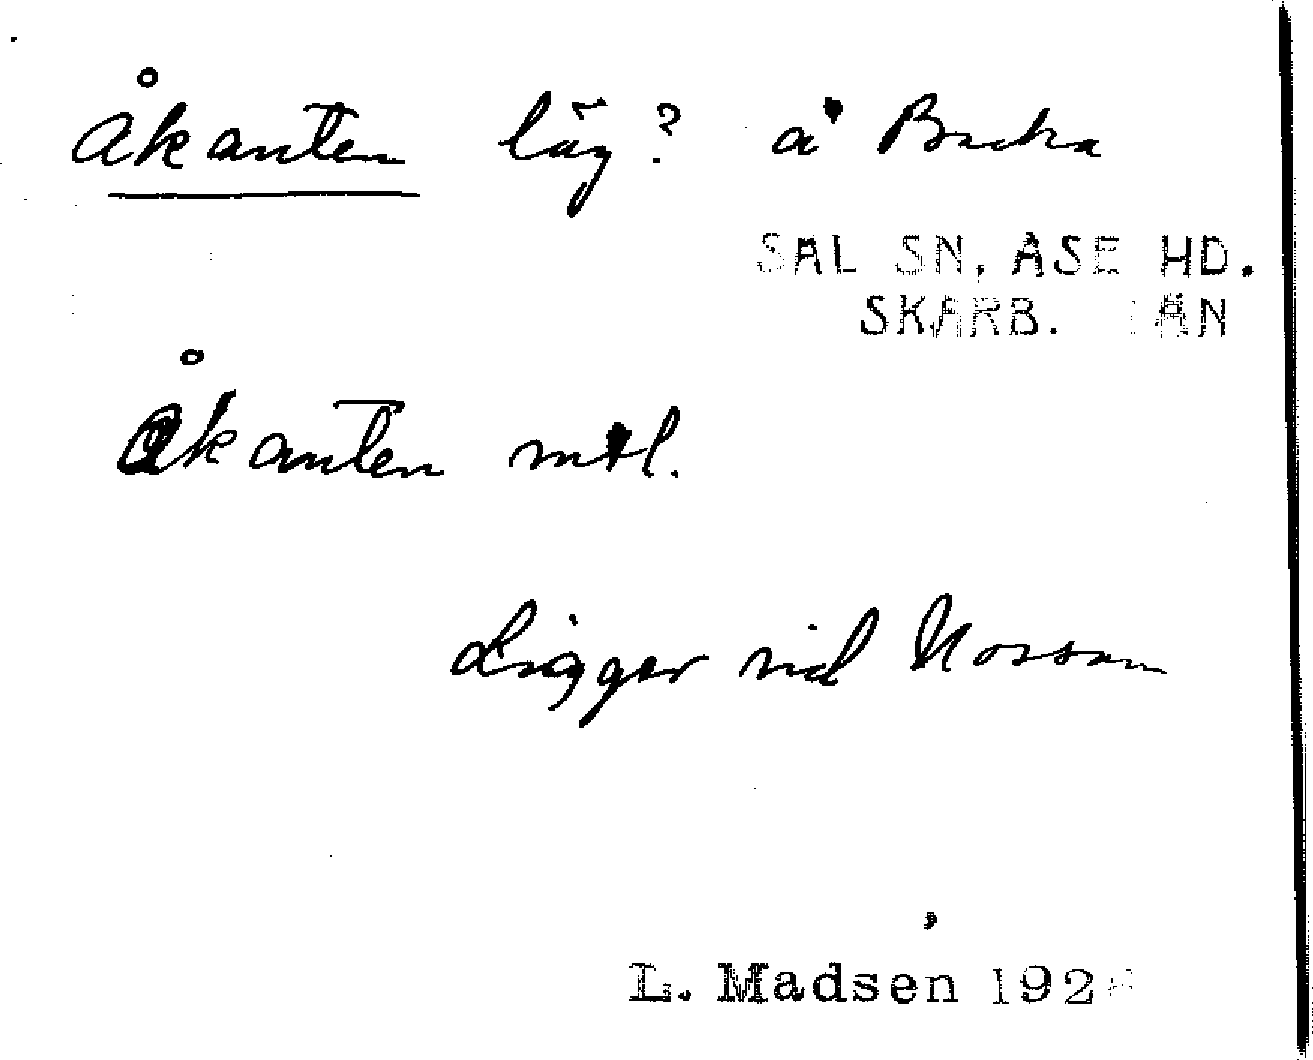 Åkanten läg? å Backa
SAL SN, ÅSE HD.
SKARB. LÄN
Åkanten mtl.
Ligger vid Nossan
L. Madsen 192